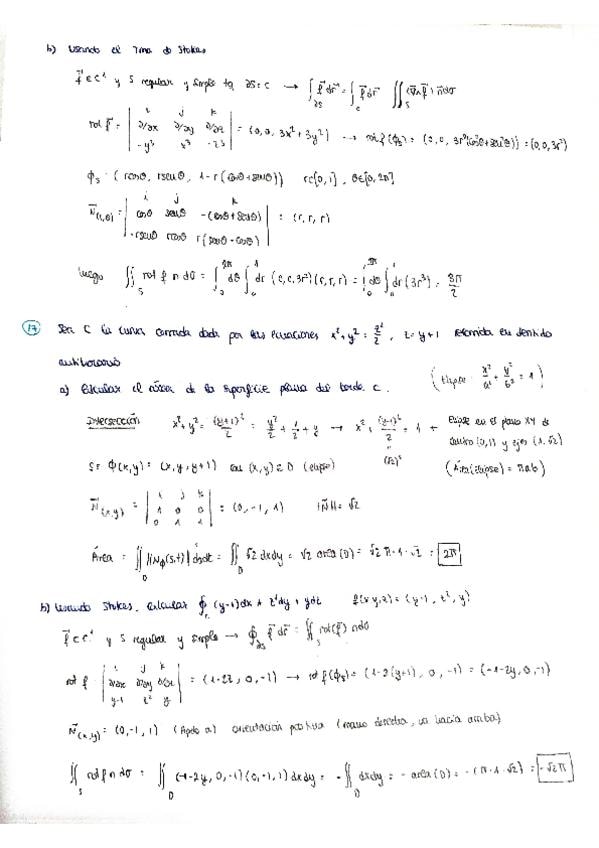 b) Usando el Tma de Stokes
f⃗ ∈ C¹ y S regular y simple tq ∂S = C → ∫_∂S f⃗ dr⃗ = ∫_C f⃗ dr⃗ ∬_S (∇∧f⃗) n⃗ dσ
rot f⃗ = | i j k ; ∂/∂x ∂/∂y ∂/∂z ; -y³ x³ -z³ | = (0, 0, 3x² + 3y²) → rot f(ϕ_S) = (0, 0, 3r²(cos²θ + sen²θ)) = (0,0,3r²)
ϕ_S = (r cosθ, r senθ, 1 - r(cosθ + senθ)) r∈[0,1], θ∈[0, 2π]
N⃗(r,θ) = | i j k ; cosθ senθ -(cosθ + senθ) ; -r senθ r cosθ r(senθ - cosθ) | = (r, r, r)
Luego ∬_S rot f n dσ = ∫_0^2π dθ ∫_0^1 dr (0,0,3r²)(r, r, r) = ∫_0^2π dθ ∫_0^1 dr (3r³) = 3π/2
17 Sea C la curva cerrada dada por las ecuaciones x² + y² = z²/2, z = y + 1 recorrida en sentido
antihorario
a) Calcular el área de la superficie plana del borde C. (Elipse x²/a² + y²/b² = 1)
Intersección x² + y² = (y+1)²/2 = y²/2 + 1/2 + y → x² + (y-1)²/2 = 1 → Elipse en el plano XY de
(√2)² centro (0,1) y ejes (1, √2)
S = Φ(x,y) = (x, y, y+1) con (x,y) ∈ D (elipse) (Área(Elipse) = πab)
N⃗(x,y) = | i j k ; 1 0 0 ; 0 1 1 | = (0, -1, 1) ‖N⃗‖ = √2
Área = ∬_D ‖N_ϕ(s,t)‖ ds dt = ∬_D √2 dx dy = √2 area(D) = √2 π·1·√2 = 2π
b) Usando Stokes, calcular ∮_C (y-1)dx + z²dy + ydz f(x,y,z) = (y-1, z², y)
f⃗ ∈ C¹ y S regular y simple → ∮_∂S f⃗ dr⃗ = ∬_S rot(f⃗) n dσ
rot f | i j k ; ∂/∂x ∂/∂y ∂/∂z ; y-1 z² y | = (1-2z, 0, -1) → rot f(ϕ_S) = (1-2(y+1), 0, -1) = (-1-2y, 0, -1)
N⃗(x,y) = (0, -1, 1) (Apdo a) orientación positiva (mano derecha, va hacia arriba)
∬_S rot f n dσ = ∬_D (-1-2y, 0, -1)(0, -1, 1) dx dy = -∬_D dx dy = - area(D) = -(π·1·√2) = -√2π